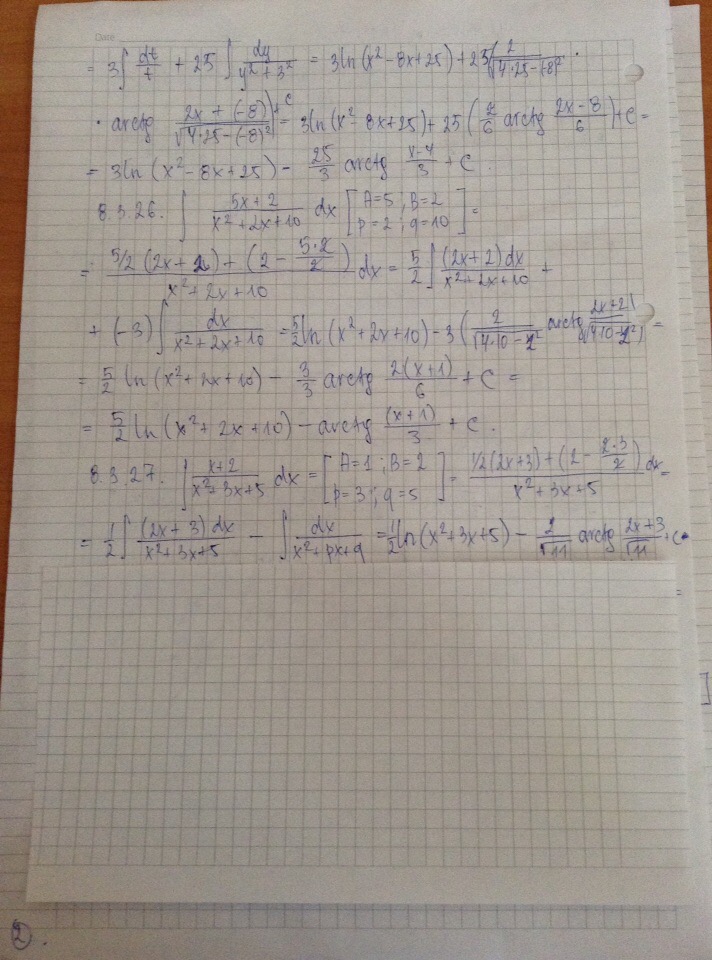 Date
= 3∫ dt/t + 25 ∫ dy/(y²+3²) = 3ln(x²-8x+25) + 25(2/√(4·25-(-8)²) ·
· arctg (2x+(-8))/√(4·25-(-8)²)) + C = 3ln(x²-8x+25) + 25(2/6 arctg (2x-8)/6) + C =
= 3ln(x²-8x+25) - 25/3 arctg (x-4)/3 + C.
8.3.26. ∫ (5x+2)/(x²+2x+10) dx [A=5; B=2 p=2; q=10] =
= (5/2(2x+2)+(2-5·2/2))/(x²+2x+10) dx = 5/2 ∫ (2x+2)dx/(x²+2x+10) +
+ (-3) ∫ dx/(x²+2x+10) = 5/2 ln(x²+2x+10) - 3(2/√(4·10-2²) arctg (2x+2)/√(4·10-2²)) =
= 5/2 ln(x²+2x+10) - 3/3 arctg 2(x+1)/6 + C =
= 5/2 ln(x²+2x+10) - arctg (x+1)/3 + C.
8.3.27. ∫ (x+2)/(x²+3x+5) dx = [A=1; B=2 p=3; q=5] = (1/2(2x+3)+(2-2·3/2))/(x²+3x+5) dx =
= 1/2 ∫ (2x+3)dx/(x²+3x+5) - ∫ dx/(x²+px+q) = 1/2 ln(x²+3x+5) - 2/√11 arctg (2x+3)/√11 + C.
=
]
2.